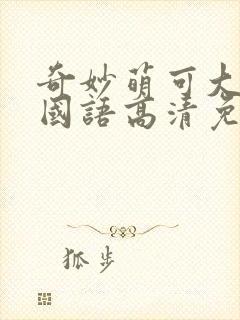 奇妙萌可大
國語高清免
狐步